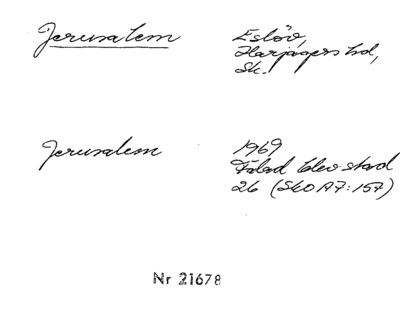 Jerusalem
Eslöv,
Harjagers hd,
Sk.
Jerusalem
1969
blev stad
26 (SkO A7:157)
Nr 21678